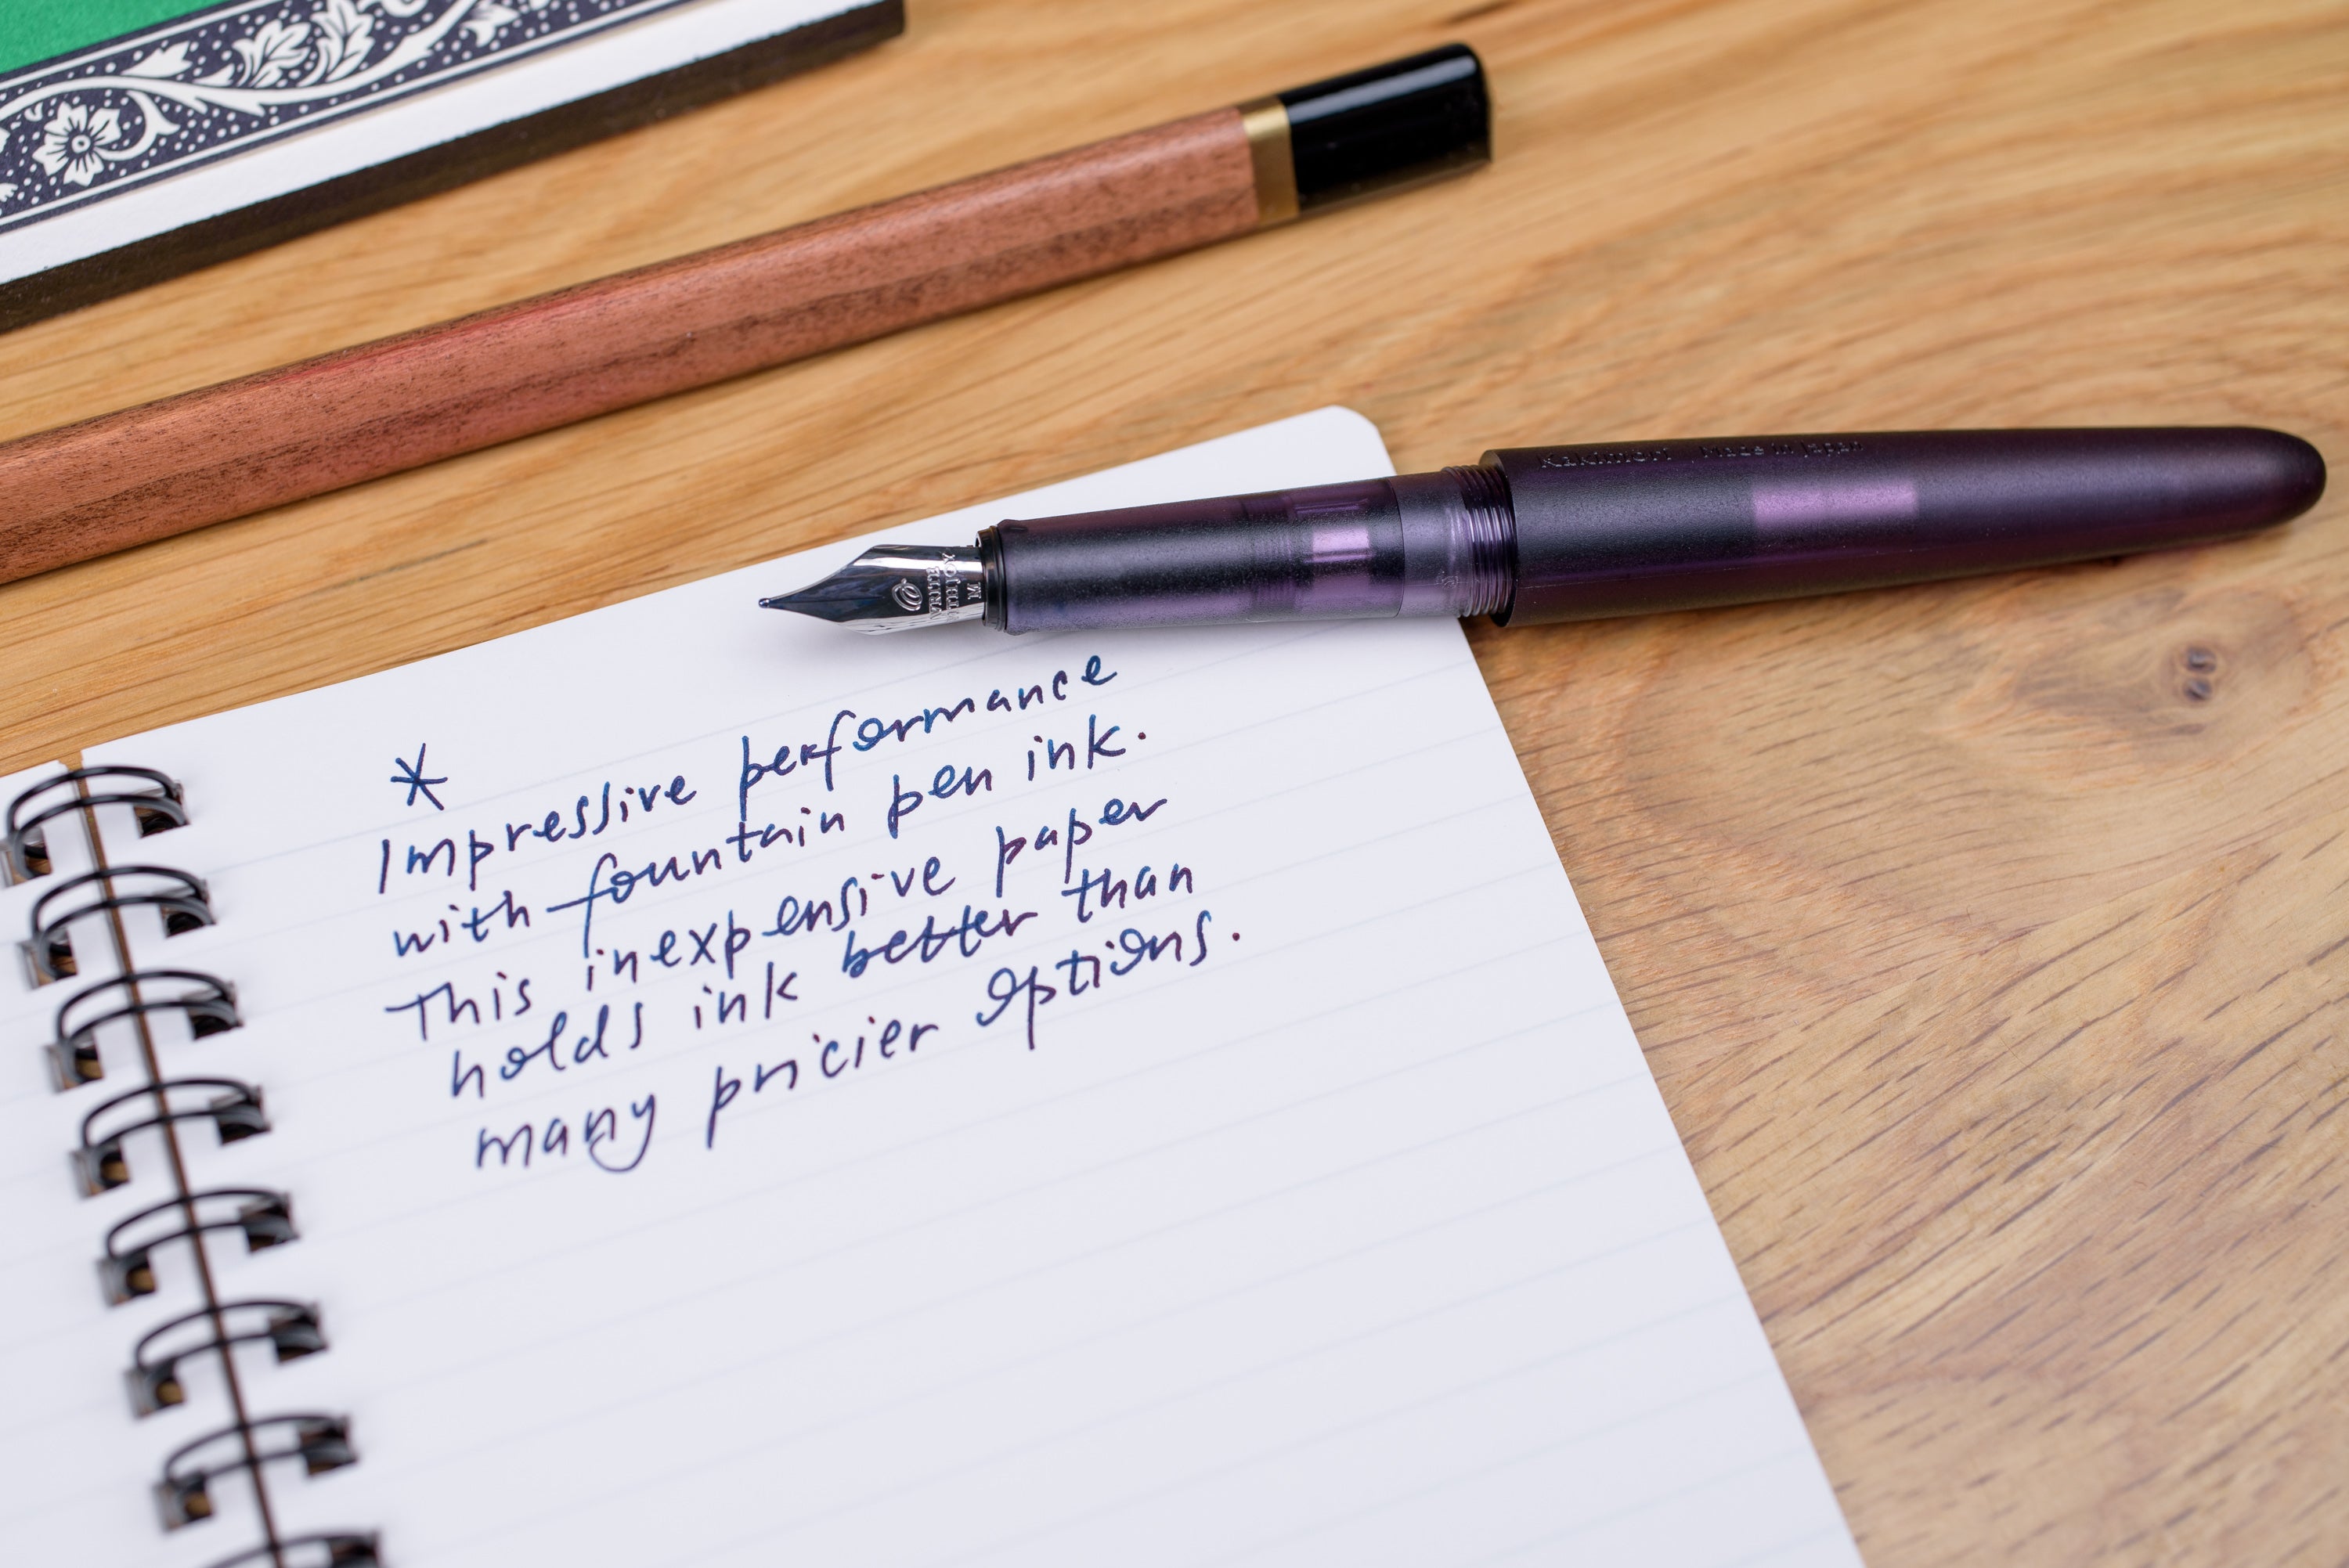 Kakimori Made in Japan
WRITE
WITH JOY
M
*
Impressive performance
with fountain pen ink.
This inexpensive paper
holds ink better than
many pricier options.